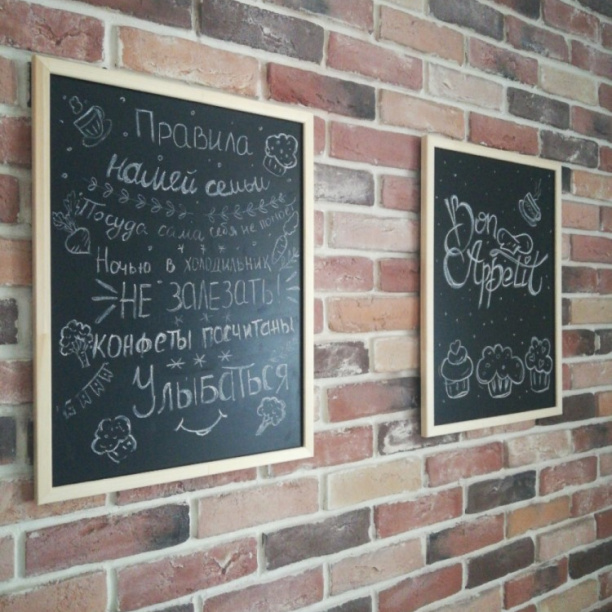 Правила
нашей семьи
Посуда сама себя не помоет
Ночью в холодильник
НЕ ЗАЛЕЗАТЬ!
конфеты посчитаны
Улыбаться
Bon
Appetit